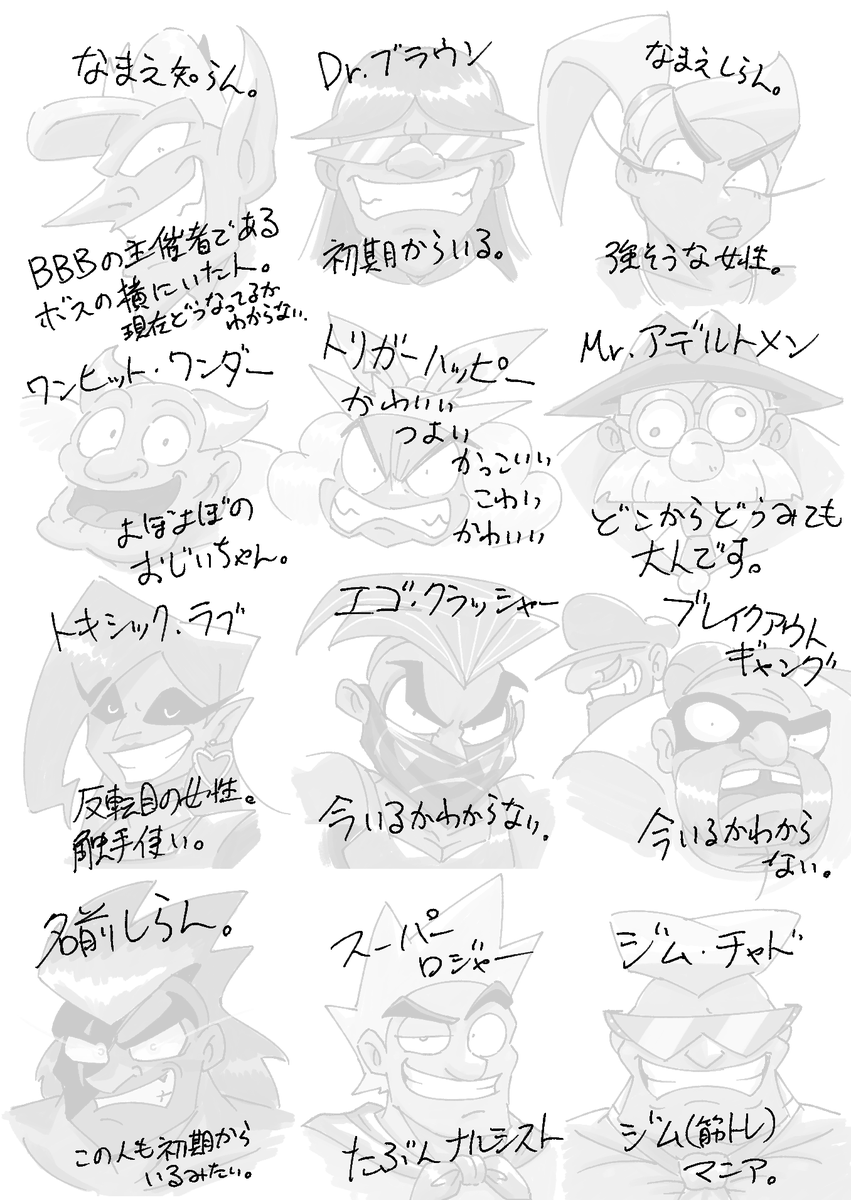 なまえ知らん。
BBBの主催者である
ボスの横にいた人。
現在どうなってるか
わからない.
Dr.ブラウン
初期からいる。
なまえしらん。
強そうな女性。
ワンヒット・ワンダー
よぼよぼの
おじいちゃん。
トリガーハッピー
かわいい
つよい
かっこいい
こわい
かわいい
Mr.アデルトメン
どこからどうみても
大人です。
トキシック・ラブ
反転目の女性。
触手使い。
エゴ・クラッシャー
今いるかわからない。
ブレイクアウト
ギャング
今いるかわから
ない。
名前しらん。
この人も初期から
いるみたい。
スーパー
ロジャー
たぶんナルシスト
ジム・チャド
ジム(筋トレ)
マニア。